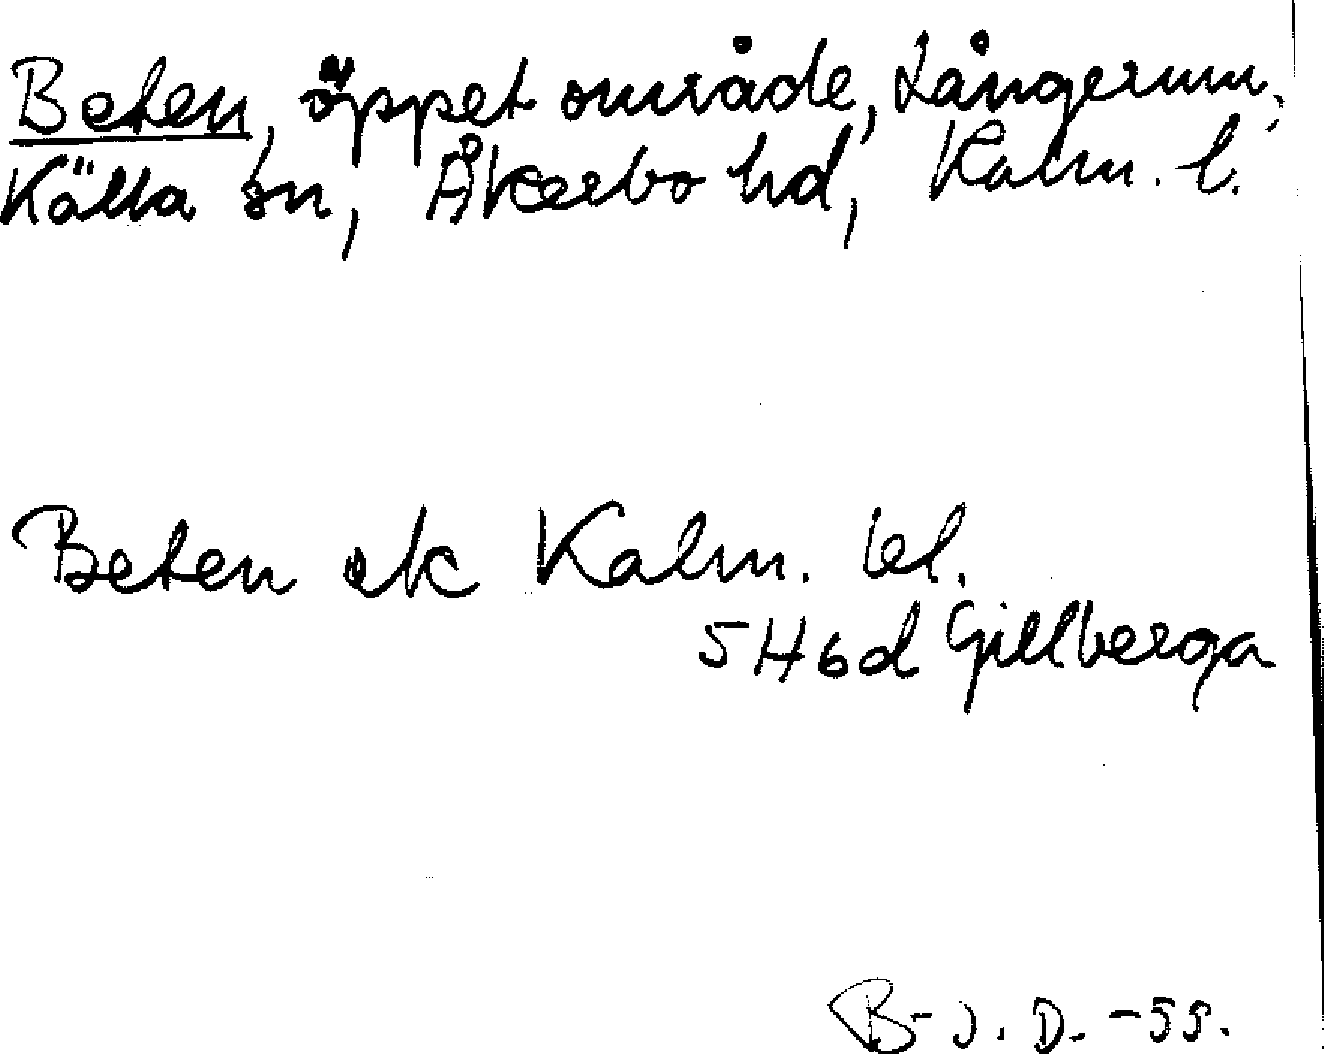 Beten, öppet område, Långerum,
Källa sn, Åkerbo hd, Kalm. l.
Beten ek Kalm. bl.
5H6d Gillberga
B-J. D. -59.